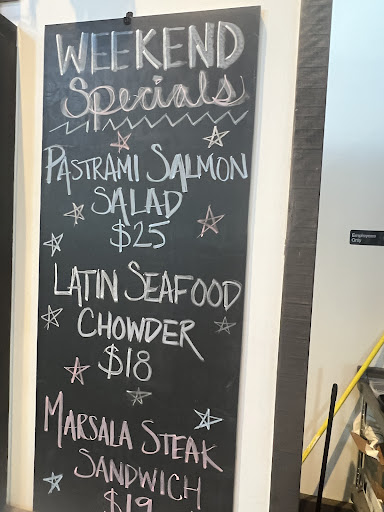 WEEKEND
Specials
PASTRAMI SALMON
SALAD
$25
LATIN SEAFOOD
CHOWDER
$18
MARSALA STEAK
SANDWICH
$19
Employees
Only